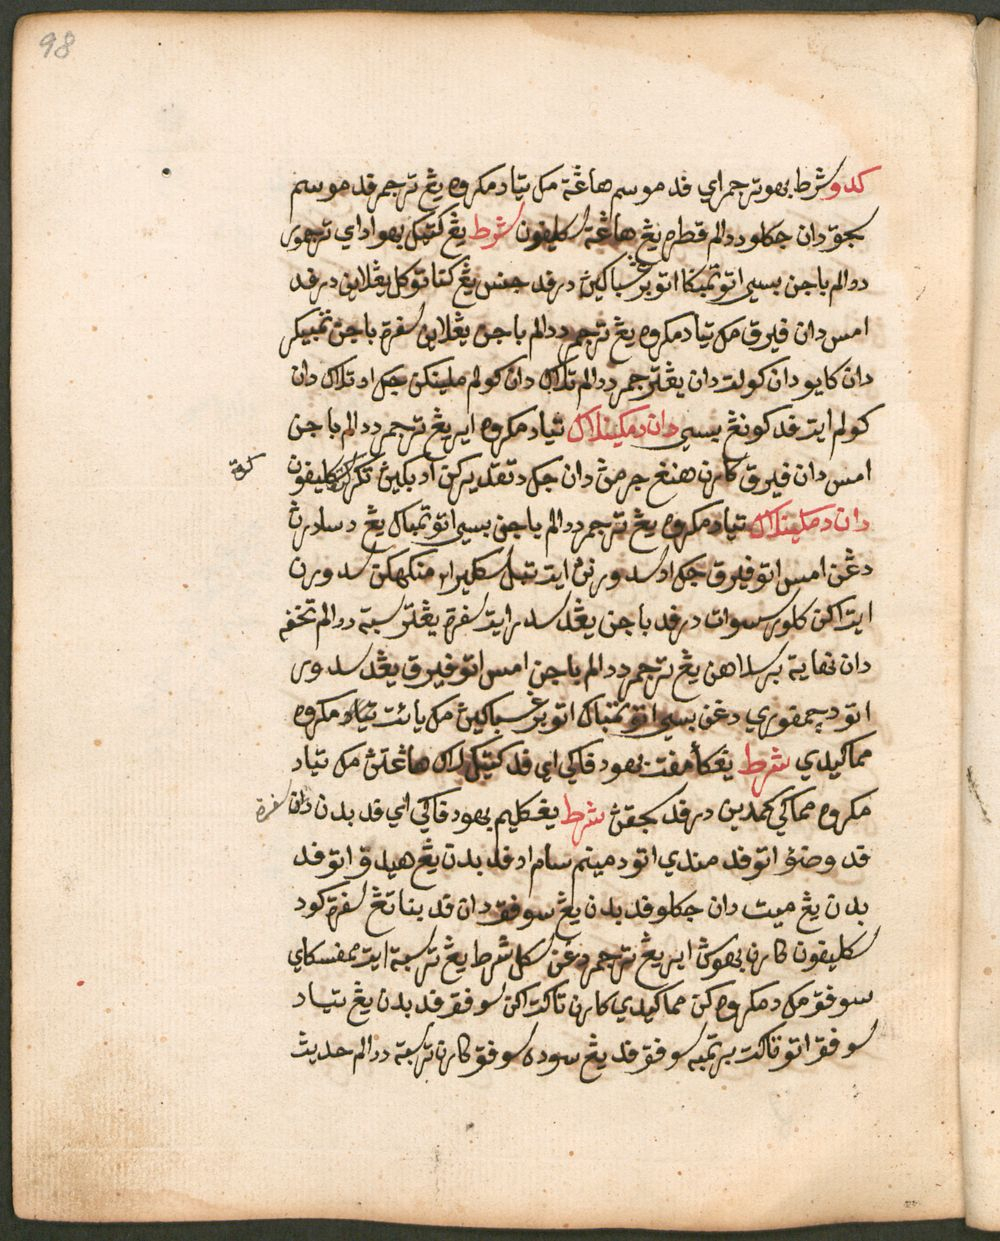 98
كدو شرط بهو ترجمر اي فد موسم هاڠة مك تياد مكروه يڠ ترجمر فد موسم
سجق دان جكلو ددالم قطره يڠ هاڠة سكليفون شرط يڠ كتيڬ بهوا داي ترجمور
ددالم باجن بسي اتو تمبڬا اتو برڠسباڬين درفد جنس يڠ كتاتوكل يڠلاين درفد
امس دان فيرق مك تياد مكروه يڠ ترجمر ددالم باجن يڠلاين سفرة باجن تمبيكر
دان كايو دان كولت دان يڠترجمر ددالم تلاڬ دان كولم ملينكن جك اد تلاڬ دان
كولم ايت فد كونڠ بسي دان دمكينلاڬ تياد مكروه اير يڠ ترجمر ددالم باجن
امس دان فيرق كارن هنيڠ جرمڽ دان جك دتقديركن اد بڬيڽ تڬرڠ سكليفون
كرة
دان دمكينلاڬ تياد مكروه يڠ ترجمر ددالم باجن بسي اتو تمباڬ يڠ دسادرڽ
دڠن امس اتو فيرق جك اد سدورنڽ ايت تبل سكيرا٢ منڬهكن سدورن
ايت اكن كلور سسوات درفد باجن يڠد سدر ايت سفرة يڠترسبة ددالم تحفه
دان نهاية برسلاهن يڠ ترجمر ددالم باجن امس اتو فيرق يڠد سدور
اتو دچمفوري دڠن بسي اتو تمباڬ اتو برڠسباڬين مك يائت تياد مكروه
مماكيدي شرط يڠكأمفت بهود فاكي اي فد كتيك لاڬ هاڠتڽ مك تياد
مكروه مماكي كمدين درفد سجقڽ شرط يڠكليم بهود فاكي اي فد بدن دان
سفرة
فد وضؤ اتو فد مندي اتو دمينم سام اد فد بدن يڠ هيدف اتو فد
بدن يڠ ميت دان جكلو فد بدن يڠ سوفق دان فد بناتڠ سفرة كود
سكليفون كارن بهوسڽ اير يڠ ترجمر دڠن سڬل شرط يڠ ترسبة ايت ممفسكاي
سوفق مك دمكروهكن مماكيدي كارن تاكت اكن سوفق فد بدن يڠ تياد
سوفق اتو تاكت برتمبه سوفق فد يڠ سوده سوفق كارن ترسبة ددالم حديث